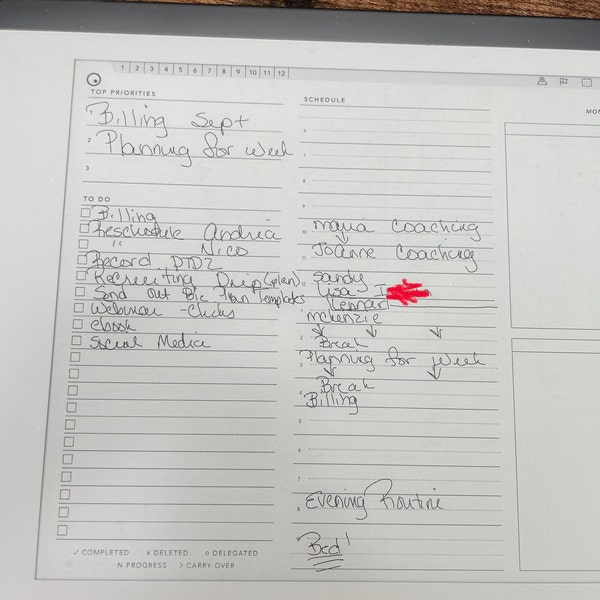 1 2 3 4 5 6 7 8 9 10 11 12
TOP PRIORITIES
1 Billing Sept
2 Planning for week
3
TO DO
Billing
Reschedule Andria
" Nico
Record DTDZ
Recruiting Drip (plan)
Send Out Biz Plan Templates
Webinar - Clicks
ebook
Social Media
✓ COMPLETED × DELETED o DELEGATED
N PROGRESS > CARRY OVER
SCHEDULE
6
7
8
9
10 Maria Coaching
11 Joanne Coaching
12 Sandy
Lisa I
Lennar
1 McKenzie
2 Break
Planning for week
3
4 Break
Billing
5
6
7
8 Evening Routine
Bed!
MON